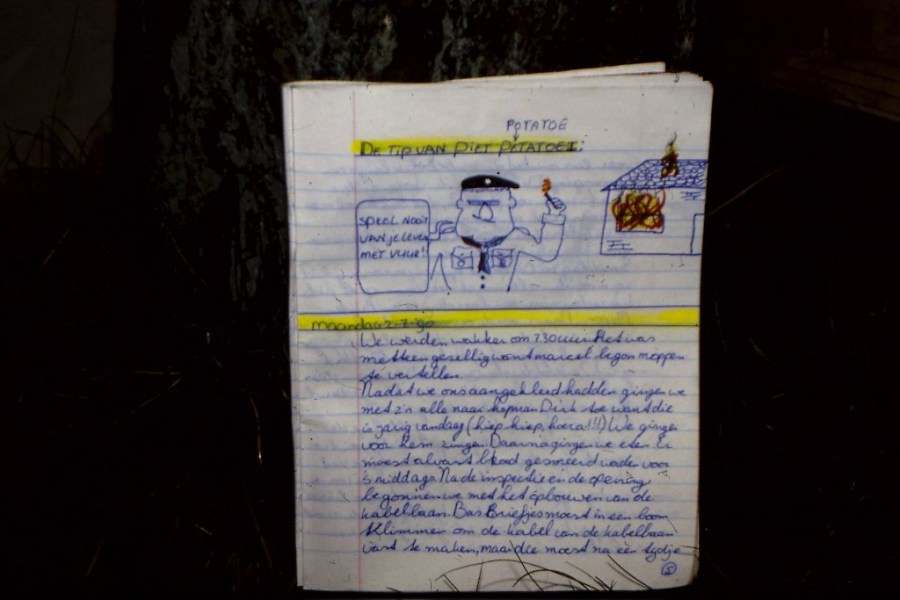 POTATOE
DE TIP VAN PIET PETATOEI:
SPEEL NOOIT
VAN JE LEVEN
MET VUUR!
maandag 2-7-90
We werden wakker om 7.30 uur. Het was
metteen gezellig want marcel begon moppen
te vertellen.
Nadat we ons aangekleed hadden gingen we
met z'n alle naar hopman Dirk toe want die
is jarig vandaag (hiep, hiep, hoera!!!) We gingen
voor hem zingen. Daarna gingen we eten. Er
moest alvast brood gesmeerd worden voor
's middags. Na de inspectie en de opening
begonnen we met het opbouwen van de
kabelbaan. Bas Briefjes moest in een boom
klimmen om de kabel van de kabelbaan
vast te maken, maar die moest na een tijdje
5